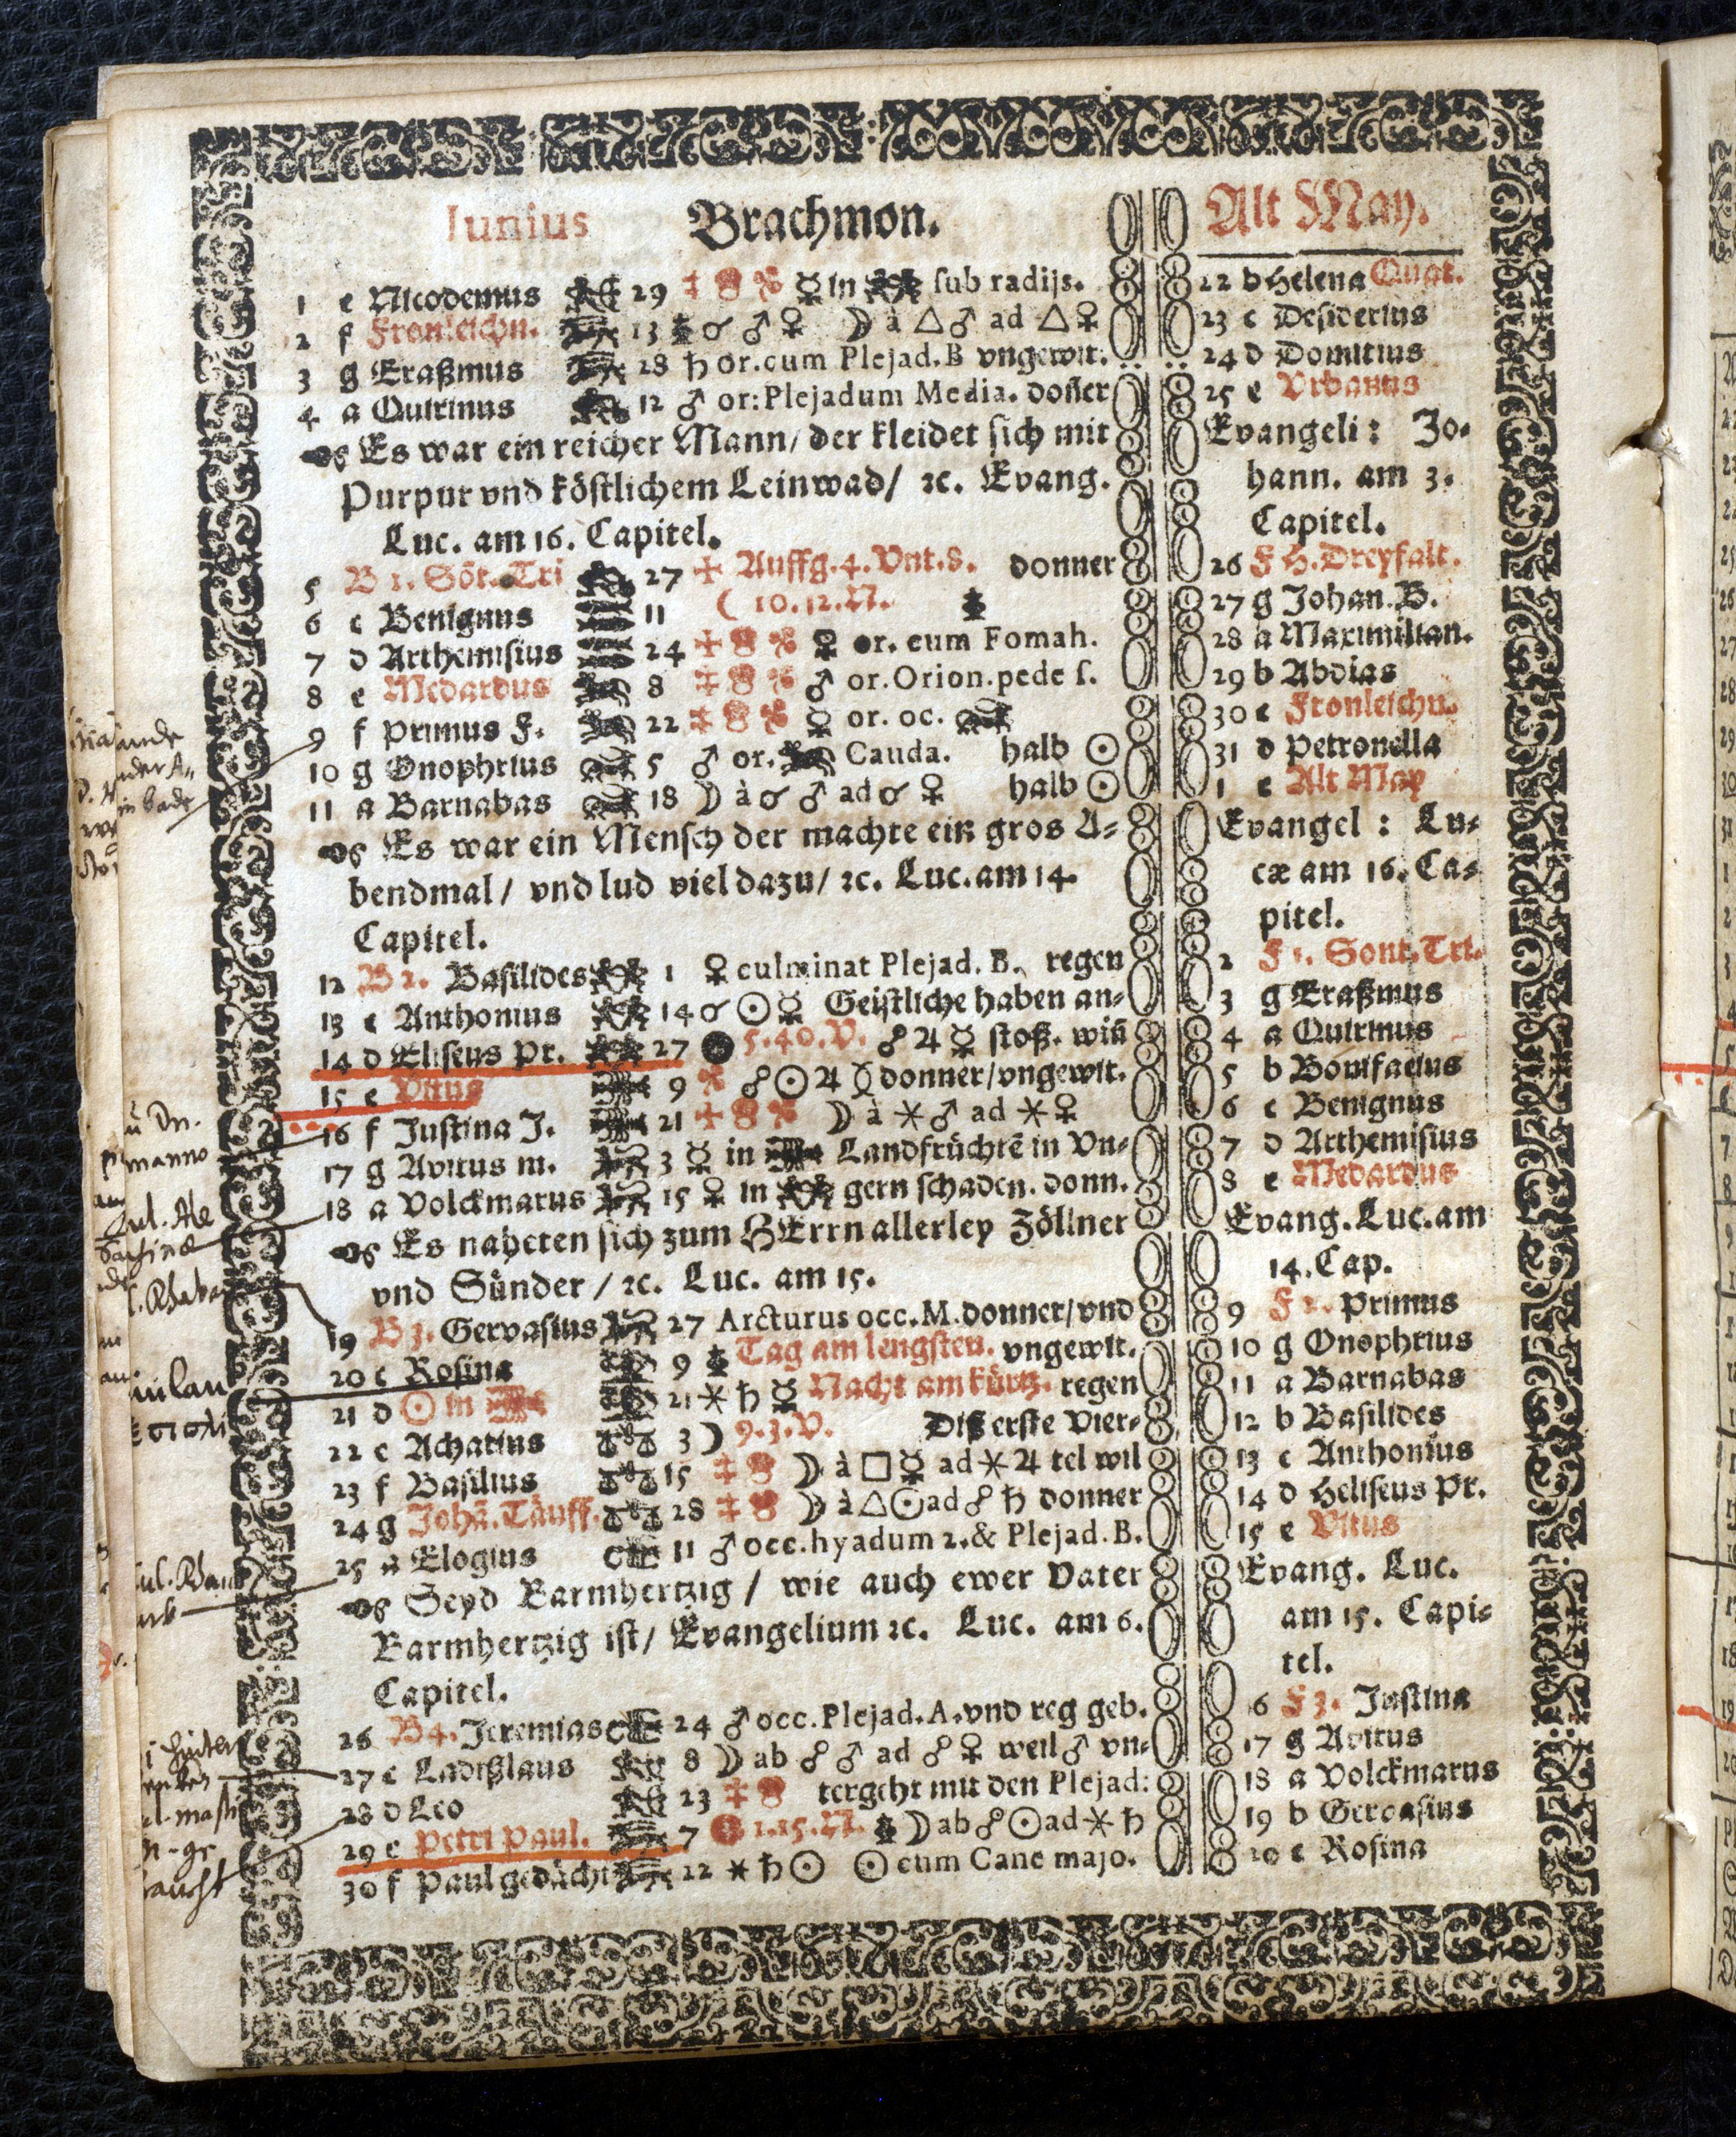 Iunius Brachmon.
1 e Nicodemus 29 ☿ in sub radijs.
2 f Fronleichn. 13 ☌ ♂ ♀ ☽ à △ ♂ ad △ ♀
3 g Eraßmus 28 ♄ or. cum Plejad. B vngewit.
4 a Quirinus 12 ♂ or: Plejadum Media. doñer
Es war ein reicher Mann/ der kleidet sich mit
Purpur vnd köstlichem Leinwad/ ꝛc. Evang.
Luc. am 16. Capitel.
5 B 1. Sõt. Tri 27 Auffg. 4. Vnt. 8. donner
6 c Benignus 11 ( 10. 12. N.
7 d Arthemisius 24 ♀ or. cum Fomah.
8 e Medardus 8 ♂ or. Orion. pede s.
9 f Primus F. 22 ☿ or. oc.
10 g Onophrius 5 ♂ or. Cauda. halb ☉
11 a Barnabas 18 ☽ à ☌ ♂ ad ☌ ♀ halb ☉
Es war ein Mensch der machte ein gros A-
bendmal/ vnd lud viel dazu/ ꝛc. Luc. am 14.
Capitel.
12 B 2. Basilides 1 ♀ culminat Plejad. B. regen
13 c Anthonius 14 ☌ ☉ ☿ Geistliche haben an-
14 d Eliseus Pr. 27 5. 40. V. ☍ ♃ ☿ stoß. wiñ
15 e Vitus 9 ☍ ☉ ♃ donner/vngewit.
16 f Justina J. 21 ☽ à ⚹ ♂ ad ⚹ ♀
17 g Avitus m. 3 ☿ in Landfrüchtẽ in Vn-
18 a Volckmarus 15 ♀ in gern schaden. donn.
Es naheten sich zum HErrn allerley Zöllner
vnd Sünder / ꝛc. Luc. am 15.
19 B 3. Gervasius 27 Arcturus occ. M. donner/vnd
20 c Rosina 9 Tag am lengsten. vngewit.
21 d ☉ in 21 ⚹ ♄ ☿ Nacht am kürtz. regen
22 e Achatius 3 ☽ 9. 3. V. Diß erste Vier-
23 f Basilius 15 ☽ à □ ☿ ad ⚹ ♃ tel wil
24 g Johã. Täuff. 28 ☽ à △ ☉ ad ☍ ♄ donner
25 a Elogius 11 ♂ occ. hyadum 2. & Plejad. B.
Seyd Barmhertzig / wie auch ewer Vater
Barmhertzig ist/ Evangelium ꝛc. Luc. am 6.
Capitel.
26 B 4. Jeremias 24 ♂ occ. Plejad. A. vnd reg geb.
27 c Ladißlaus 8 ☽ ab ☍ ♂ ad ☍ ♀ weil ♂ vn-
28 d Leo 23 tergeht mit den Plejad:
29 e Petri Paul. 7 1. 15. N. ☽ ab ☍ ☉ ad ⚹ ♄
30 f Paul gedächt 22 ⚹ ♄ ☉ ☉ cum Cane majo.
Alt May.
22 b Helena Quat.
23 c Desiderius
24 d Domitius
25 e Vrbanus
Evangeli: Jo-
hann. am 3.
Capitel.
26 F H. Dreyfalt.
27 g Johan. B.
28 a Maximilian.
29 b Abdias
30 c Fronleichn.
31 d Petronella
1 e Alt May
Evangel: Lu-
cæ am 16. Ca-
pitel.
2 F 1. Sont. Tri.
3 g Eraßmus
4 a Quirinus
5 b Bonifacius
6 c Benignus
7 d Arthemisius
8 e Medardus
Evang. Luc. am
14. Cap.
9 F 2. Primus
10 g Onophrius
11 a Barnabas
12 b Basilides
13 c Anthonius
14 d Heliseus Pr.
15 e Vitus
Evang. Luc.
am 15. Capi-
tel.
16 F 3. Justina
17 g Avitus
18 a Volckmarus
19 b Gervasius
20 c Rosina